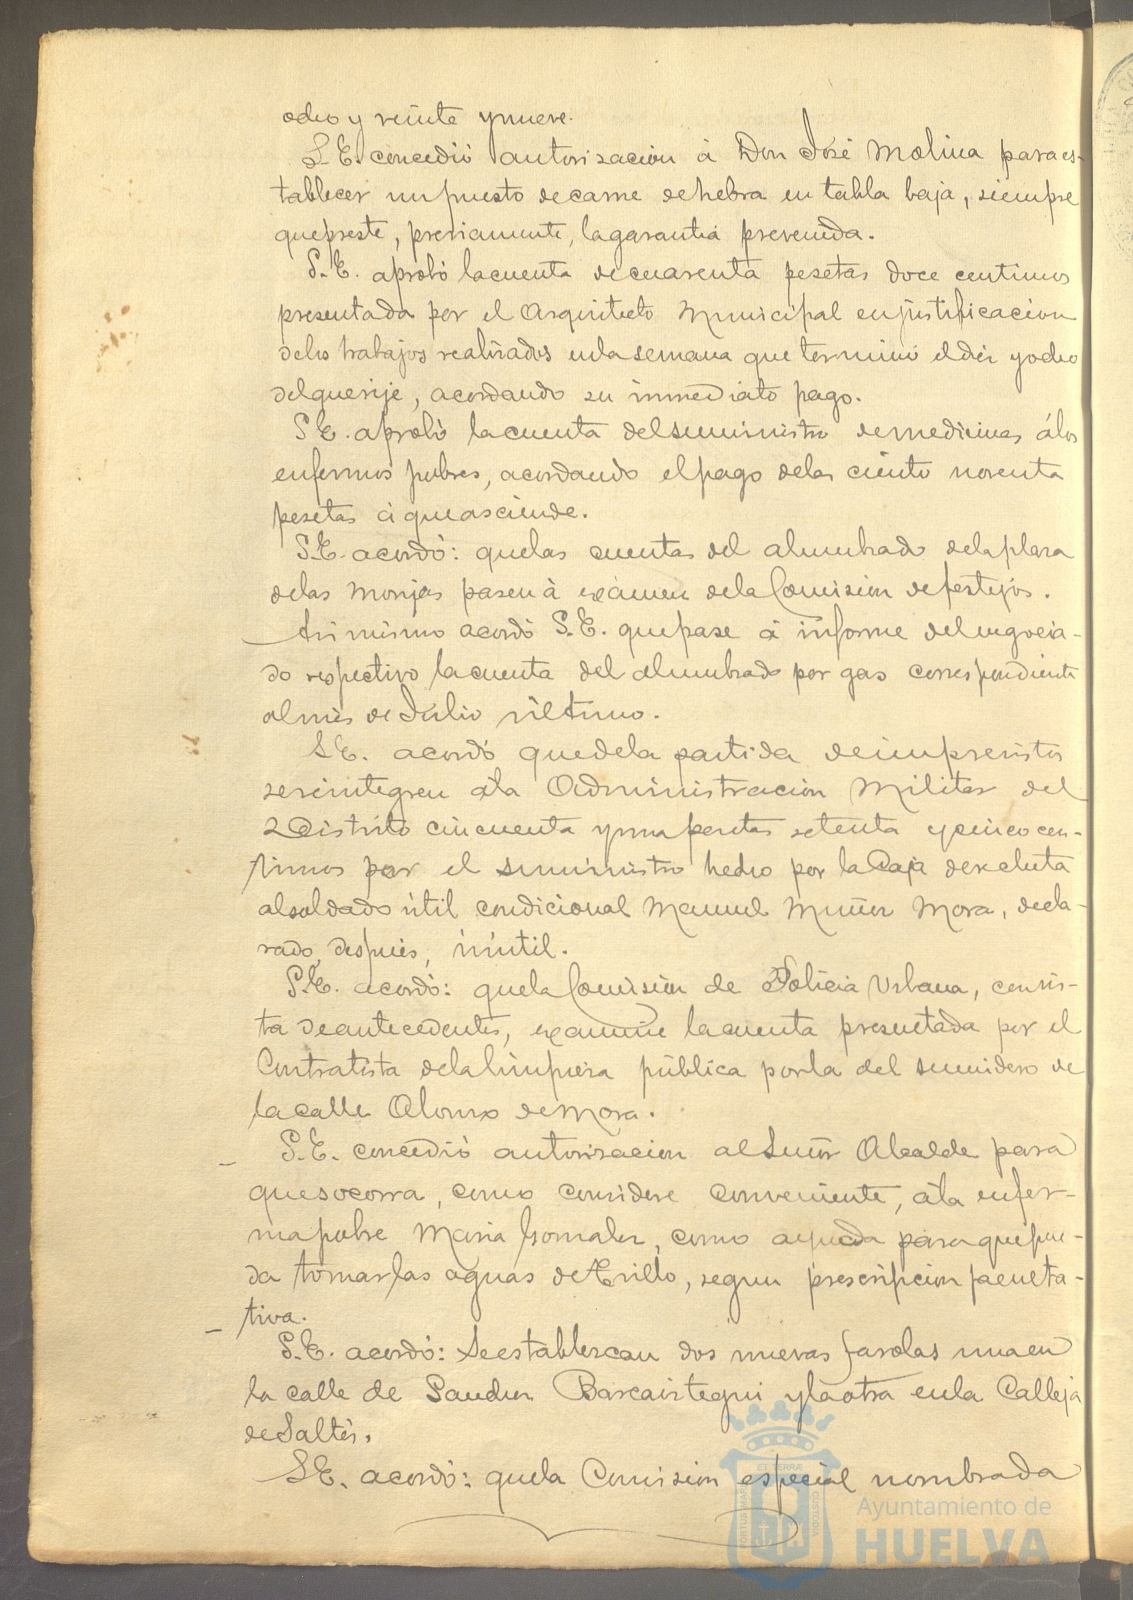 ocho y veinte y nueve.
S.E. concedió autorización á Don José Molina para es-
tablecer un puesto de carne de hebra en tabla baja, siempre
que preste, previamente, la garantia prevenida.
S.E. aprobó la cuenta de cuarenta pesetas doce centimos
presentada por el Arquitecto Municipal en justificacion
de los trabajos realizados en la semana que terminó el diez y ocho
del que rije, acordando su inmediato pago.
S.E. aprobó la cuenta del suministro de medicinas á los
enfermos pobres, acordando el pago de las ciento noventa
pesetas á que asciende.
S.E. acordó: que las cuentas del alumbrado de la plaza
de las Monjas pasen á exámen de la Comision de festejos.
Asimismo acordó S.E. que pase á informe del negocia-
do respectivo la cuenta del alumbrado por gas correspondiente
al mes de Julio último.
S.E. acordó que de la partida de imprevistos
se reintegren á la Administracion Militar del
2 Distrito cincuenta y una pesetas setenta y cinco cen-
timos por el suministro hecho por la Caja de recluta
al soldado útil condicional Manuel Muñoz Mora, decla-
rado, después, inútil.
S.E. acordó: que la Comisión de Policia Urbana, con vis-
ta de antecedentes, examine la cuenta presentada por el
Contratista de la limpieza pública por la del sumidero de
la calle Alonso de Mora.
S.E. concedió autorizacion al Señor Alcalde para
que socorra, como considere conveniente, á la enfer-
ma pobre Maria Gonzalez, como ayuda para que pue-
da tomar las aguas de Trillo, segun prescripcion faculta-
tiva.
S.E. acordó: Se establezcan dos nuevas farolas una en
la calle de Sanchez Barcaiztegui y la otra en la Calleja
de Saltés.
S.E. acordó: que la Comision especial nombrada
ET TERRAE
PORTUS MARIS
CUSTODIA
Ayuntamiento de
HUELVA